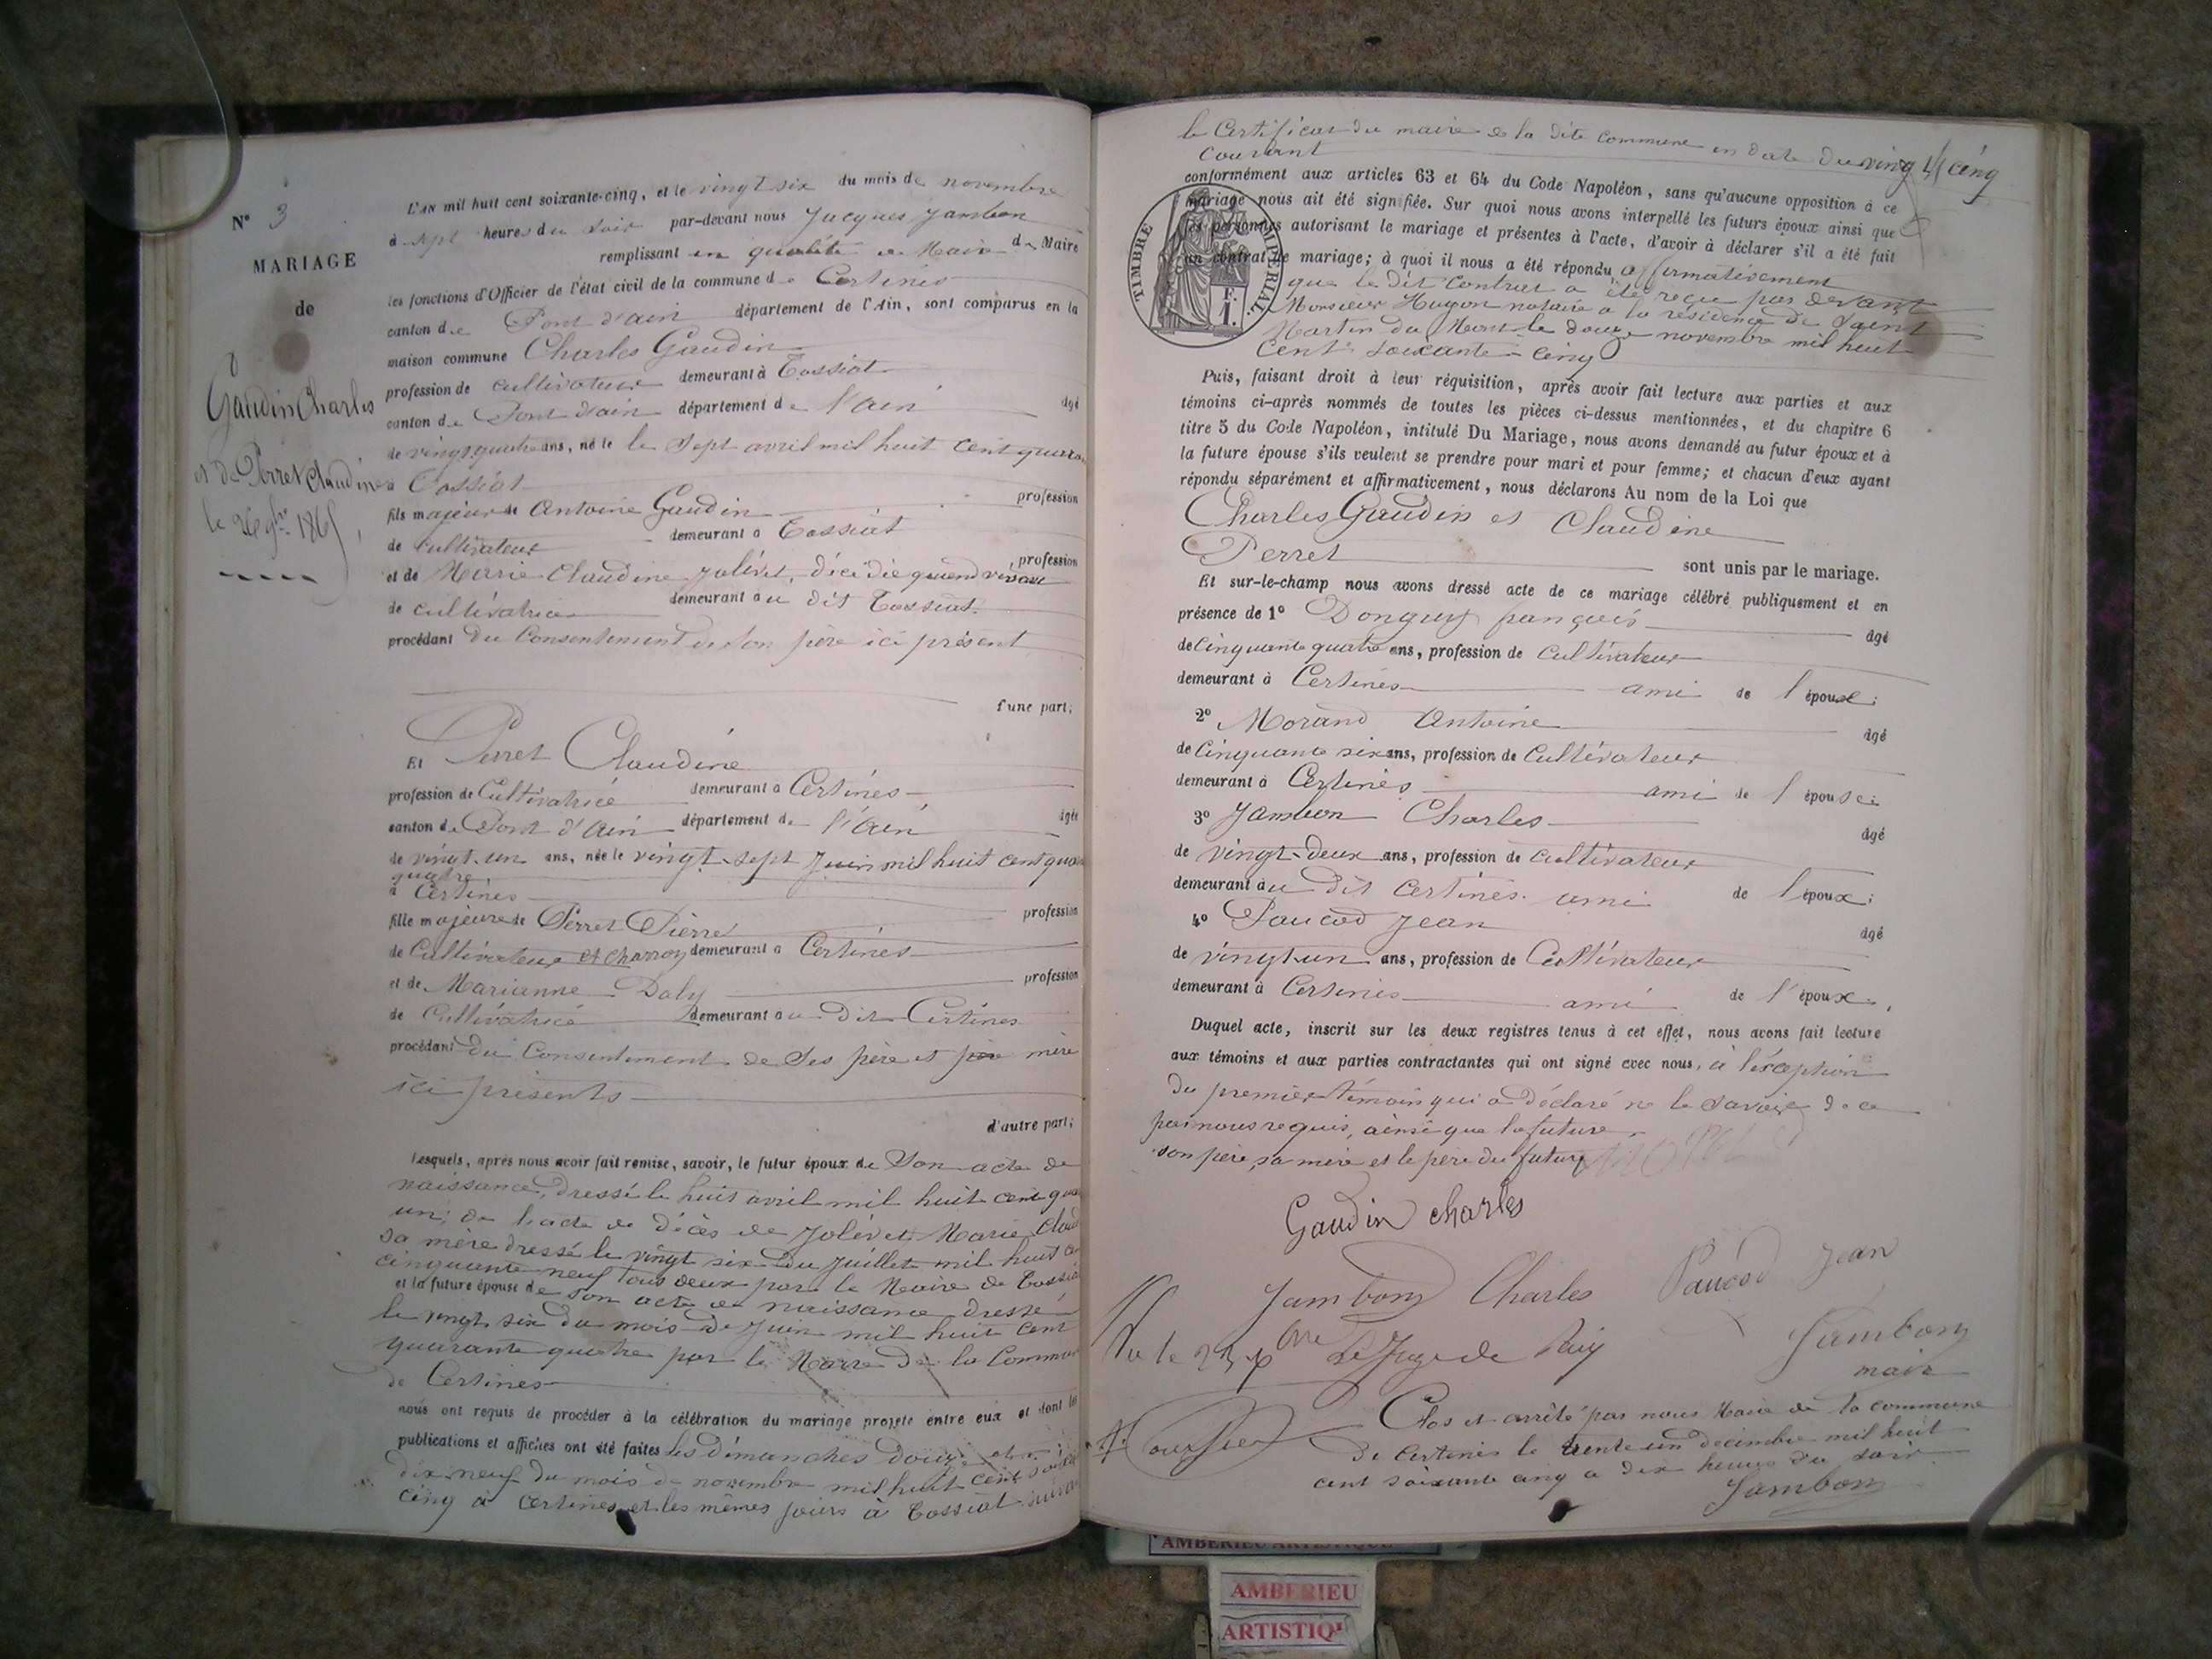 N° 3
MARIAGE
de
Gaudin Charles
et de Perret Claudine
le 26 9bre 1865
L'AN mil huit cent soixante-cinq, et le vingt six du mois de novembre
à sept heures du soir par-devant nous Jacques Jambon
remplissant en qualité de Maire de Maire
les fonctions d'Officier de l'état civil de la commune de Certines
canton de Pont d'ain département de l'Ain, sont comparus en la
maison commune Charles Gaudin
profession de cultivateur demeurant à Tossiat
canton de Pont d'ain département de l'Ain âgé
de vingt quatre ans, né le le sept avril mil huit cent quara
à Tossiat
fils majeur de Antoine Gaudin profession
de cultivateur demeurant à Tossiat
et de Marie Claudine Jolivet, décédée quand vivait profession
de cultivatrice demeurant à u dit Tossiat
procédant du Consentement de son père ici présent
d'une part;
Et Perret Claudine
profession de Cultivatrice demeurant à Certines
canton de Pont d'Ain département de l'Ain âgée
de vingt-un ans, née le vingt-sept Juin mil huit cent qua
quatre
à Certines
fille majeure de Perret Pierre profession
de Cultivateur et charron demeurant à Certines
et de Marianne Daly profession
de Cultivatrice demeurant à u dit Certines
procédant du Consentement de ses père et père mère
ici présents
d'autre part;
Lesquels, après nous avoir fait remise, savoir, le futur époux de son acte de
naissance, dressé le huit avril mil huit cent qua
un; de l'acte de décès de Jolivet Marie Claud
sa mère dressé le vingt six du Juillet mil huit ce
cinquante neuf tous deux par le Maire de Tossia
et la future épouse de son acte de naissance dressé
le vingt six du mois de Juin mil huit cent
quarante quatre par le Maire de la Commu
de Certines
nous ont requis de procéder à la célébration du mariage projeté entre eux et dont les
publications et affiches ont été faites les dimanches douze et
dix neuf du mois de novembre mil huit cent soix
cinq à Certines et les mêmes jours à Tossiat suivan
le Certificat du maire de la dite commune en date du vingt cinq
courant
conformément aux articles 63 et 64 du Code Napoléon, sans qu'aucune opposition à ce
mariage nous ait été signifiée. Sur quoi nous avons interpellé les futurs époux ainsi que
les personnes autorisant le mariage et présentes à l'acte, d'avoir à déclarer s'il a été fait
un contrat de mariage; à quoi il nous a été répondu affirmativement
que le dit contrat a été reçu par devant
Monsieur Hugon notaire à la résidence de Saint
Martin du Mont le douze novembre mil huit
cent soixante-cinq
TIMBRE IMPÉRIAL
F.
1.
Puis, faisant droit à leur réquisition, après avoir fait lecture aux parties et aux
témoins ci-après nommés de toutes les pièces ci-dessus mentionnées, et du chapitre 6
titre 5 du Code Napoléon, intitulé Du Mariage, nous avons demandé au futur époux et à
la future épouse s'ils veulent se prendre pour mari et pour femme; et chacun d'eux ayant
répondu séparément et affirmativement, nous déclarons Au nom de la Loi que
Charles Gaudin et Claudine
Perret sont unis par le mariage.
Et sur-le-champ nous avons dressé acte de ce mariage célébré publiquement et en
présence de 1° Donguy françois âgé
de cinquante quatre ans, profession de cultivateur
demeurant à Certines ami de l'épouse;
2° Morand Antoine âgé
de Cinquante six ans, profession de Cultivateur
demeurant à Certines ami de l'épouse;
3° Jambon Charles âgé
de vingt-deux ans, profession de cultivateur
demeurant à u dit Certines. ami de l'époux;
4° Paucod Jean âgé
de vingt-un ans, profession de Cultivateur
demeurant à Certines ami de l'époux.
Duquel acte, inscrit sur les deux registres tenus à cet effet, nous avons fait lecture
aux témoins et aux parties contractantes qui ont signé avec nous, à l'exception
du premier témoin qui a déclaré ne le savoir de ce
par nous requis, ainsi que la future
son père, sa mère et le père du futur
Gaudin charles
Jambon Charles Paucod Jean
Jambon
maire
Vu le Le Juge de Paix
Clos et arrêté par nous Maire de la commune
de Certines le trente un decembre mil huit
cent soixante cinq à dix heures du soir
Jambon
AMBERIEU ARTISTIQUE
AMBERIEU
ARTISTIQ